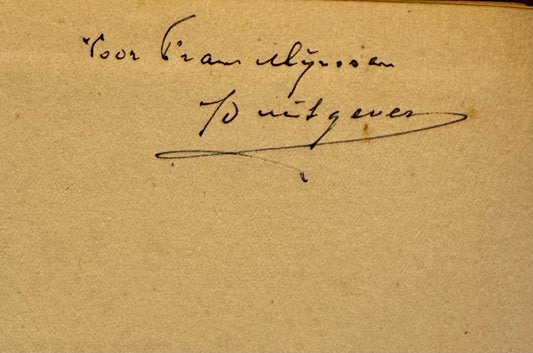 Voor Frans Mijnssen
D uitgever